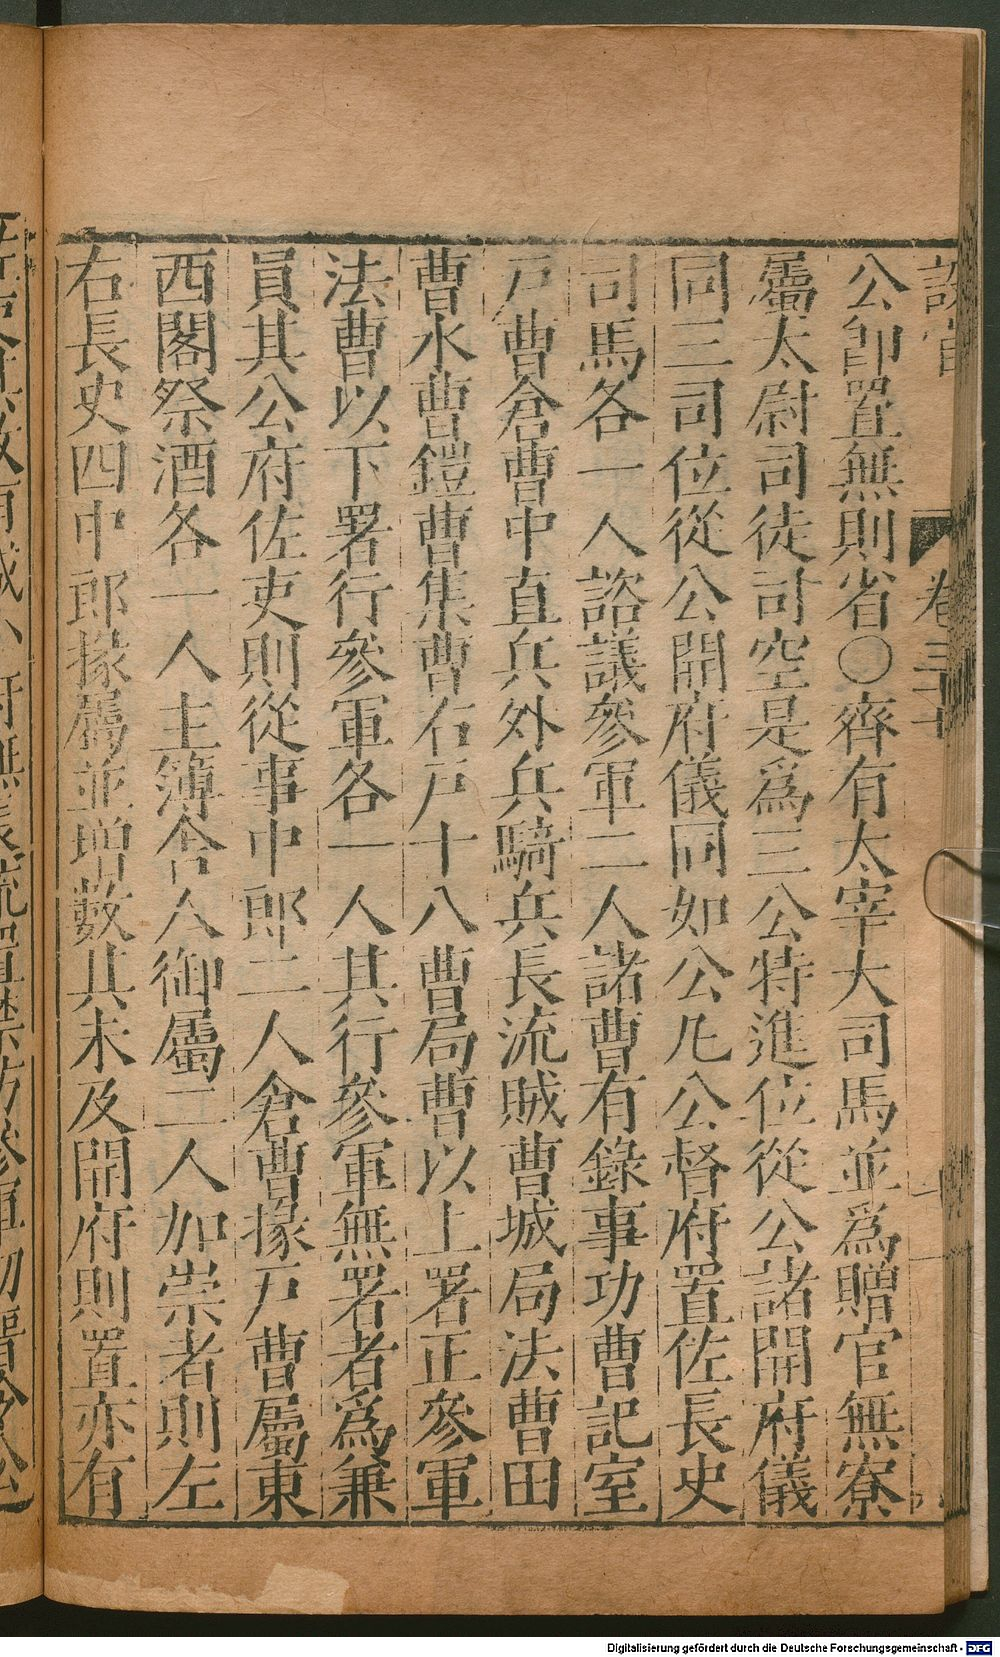 公卽置無則省○齊有太宰大司馬並爲贈官無寮
屬太尉司徒司空是爲三公特進位從公諸開府儀
同三司位從公開府儀同如公凡公督府置佐長史
司馬各一人諮議參軍二人諸曹有錄事功曹記室
戸曹倉曹中直兵外兵騎兵長流賊曹城局法曹田
曹水曹鎧曹集曹右戸十八曹局曹以上署正參軍
法曹以下署行參軍各一人其行參軍無署者爲兼
員其公府佐吏則從事中郎二人倉曹掾戸曹屬東
西閤祭酒各一人主簿舍人御屬二人加崇者則左
右長史四中郎掾屬並增數其未及開府則置亦有
Digitalisierung gefördert durch die Deutsche Forschungsgemeinschaft - DFG